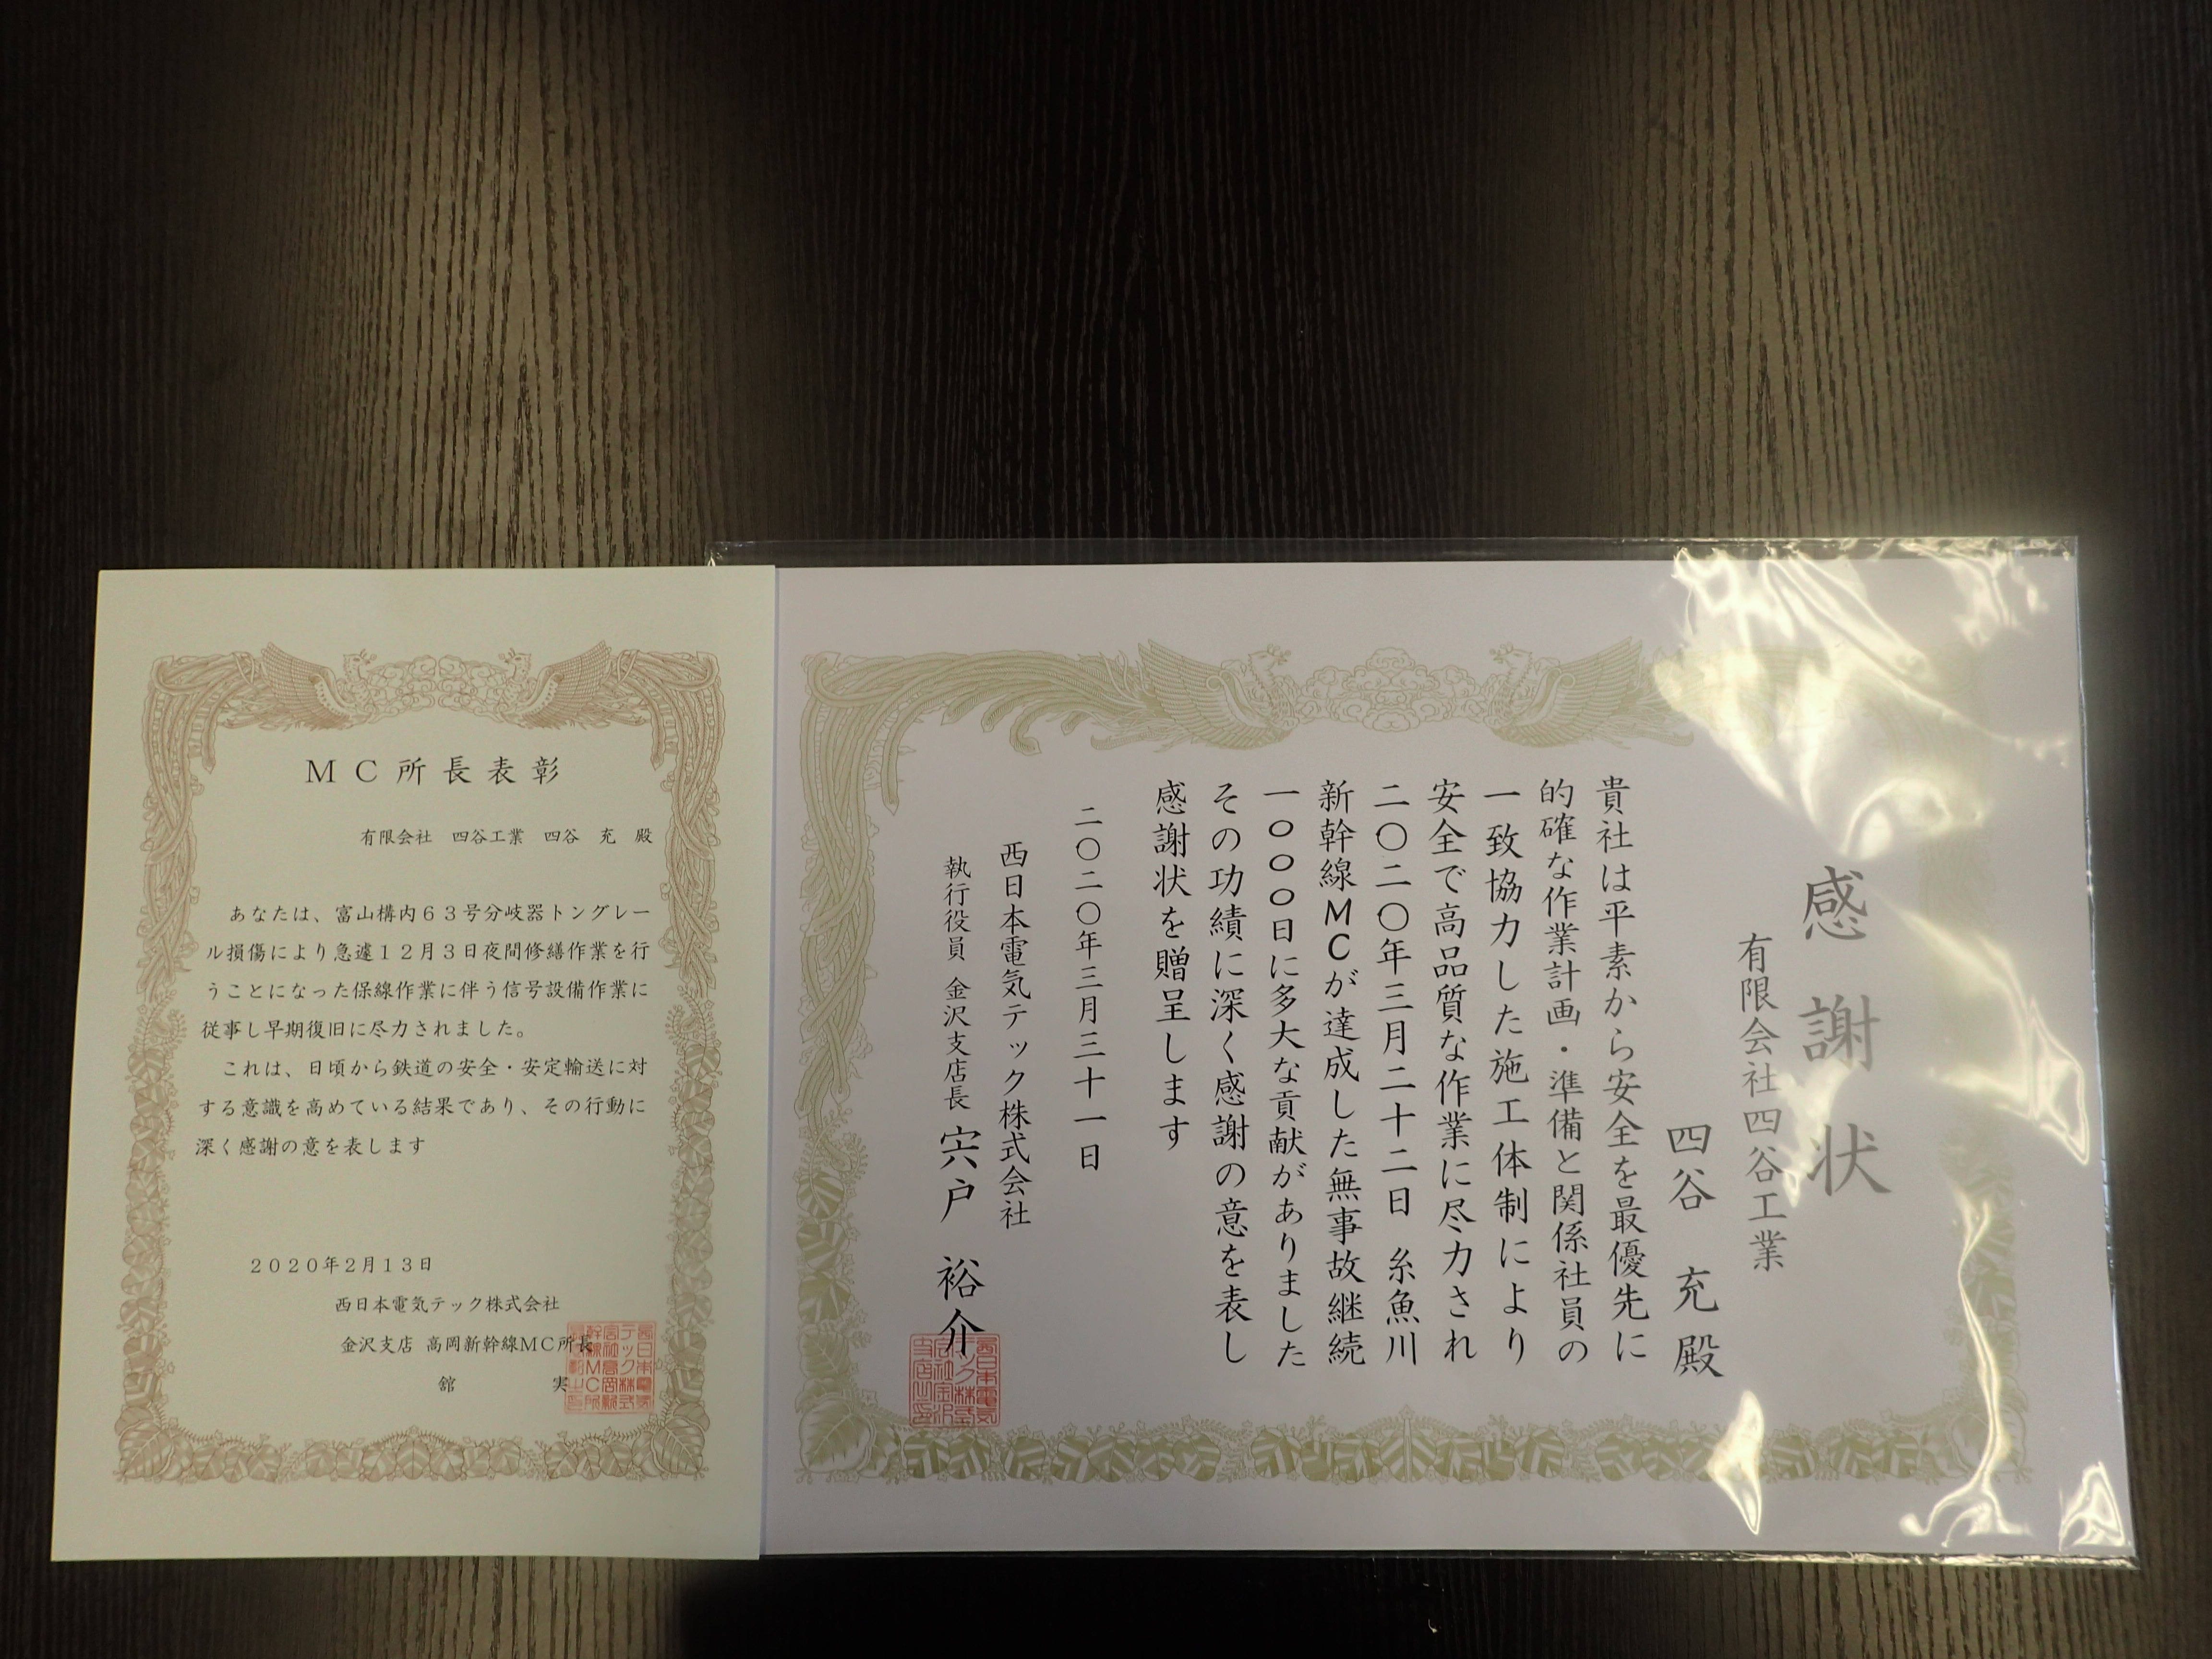 ＭＣ所長表彰
有限会社　四谷工業　四谷　充　殿
あなたは、富山構内６３号分岐器トングレー
ル損傷により急遽１２月３日夜間修繕作業を行
うことになった保線作業に伴う信号設備作業に
従事し早期復旧に尽力されました。
これは、日頃から鉄道の安全・安定輸送に対
する意識を高めている結果であり、その行動に
深く感謝の意を表します
２０２０年２月１３日
西日本電気テック株式会社
金沢支店　高岡新幹線ＭＣ所長
舘　実
感謝状
有限会社四谷工業
四谷　充　殿
貴社は平素から安全を最優先に
的確な作業計画・準備と関係社員の
一致協力した施工体制により
安全で高品質な作業に尽力され
二〇二〇年三月二十二日　糸魚川
新幹線ＭＣが達成した無事故継続
一〇〇〇日に多大な貢献がありました
その功績に深く感謝の意を表し
感謝状を贈呈します
二〇二〇年三月三十一日
西日本電気テック株式会社
執行役員　金沢支店長　宍戸　裕介